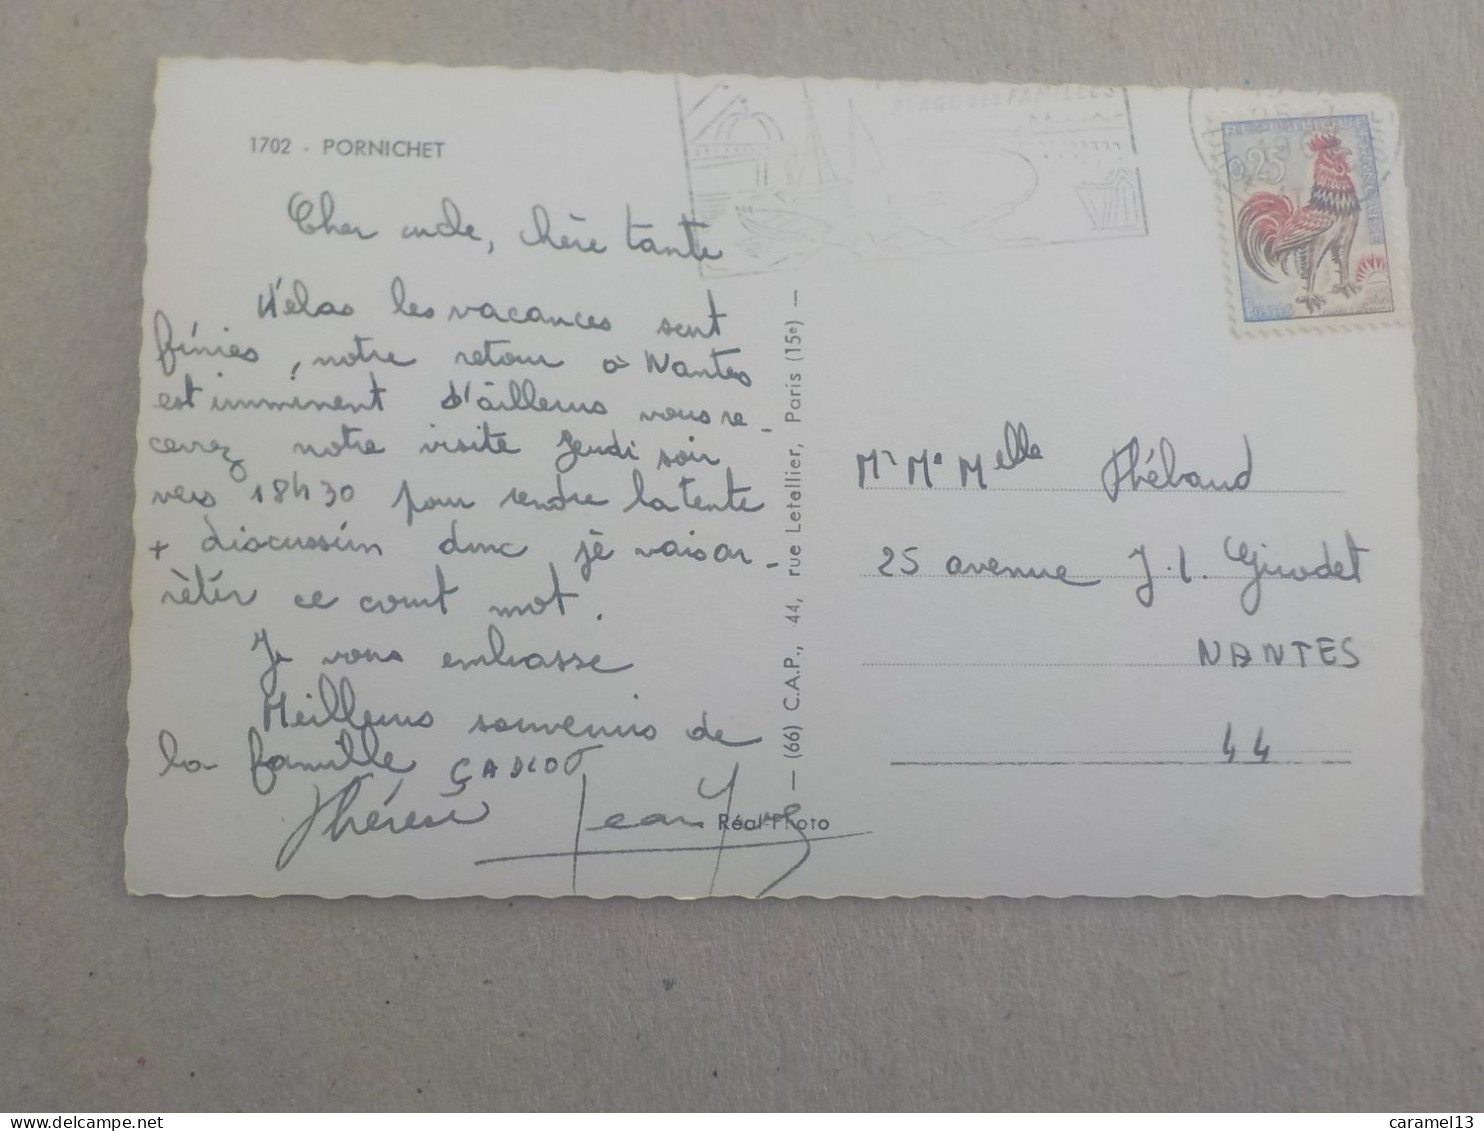 1702 - PORNICHET
PLAGE DES FAMILLES
0,25
POSTES
Cher oncle, chère tante
Hélas les vacances sont
finies, notre retour à Nantes
est imminent d'ailleurs vous re-
cevrez notre visite Jeudi soir
vers 18H30 pour rendre la tente
+ discussion donc je vais ar-
rêter ce court mot.
Je vous embrasse
Meilleurs souvenirs de
la famille
Thérèse Jean Yves
Réal-Photo
— (66) C.A.P., 44, rue Letellier, Paris (15e) —
Mr Me Melle Thébaud
25 avenue J.L. Girodet
NANTES
44
caramel13